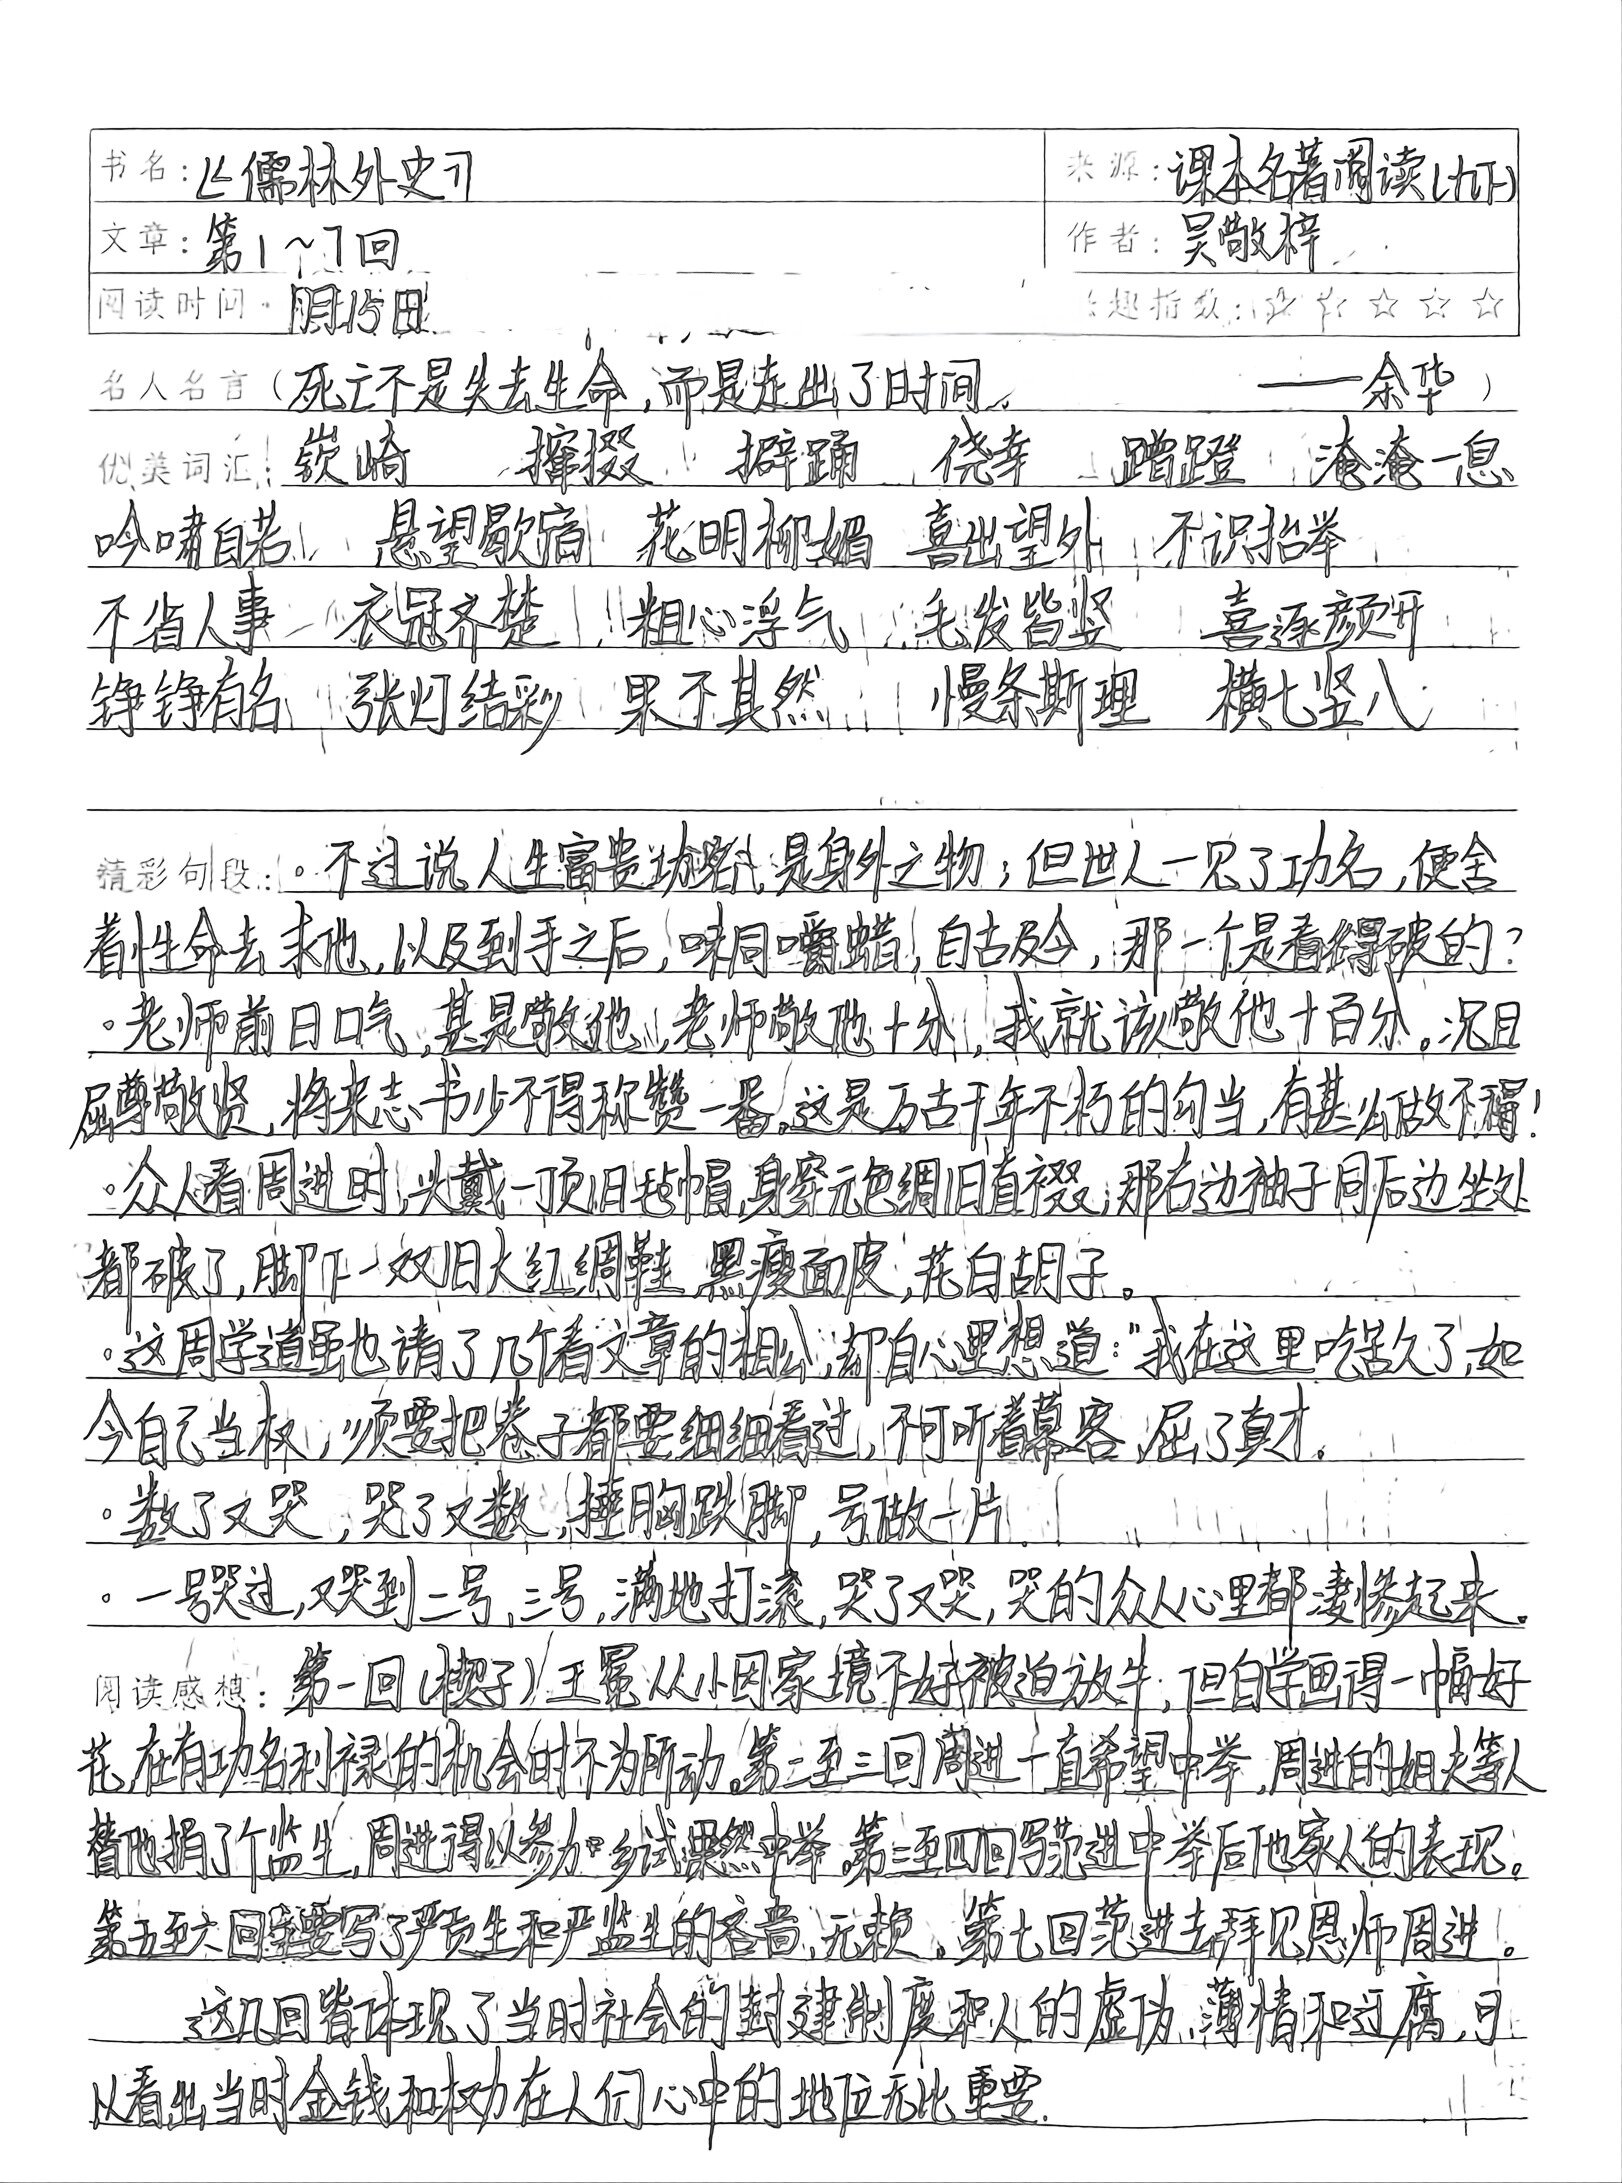 书名：《儒林外史》 来源：课本名著阅读(九下)
文章：第1~7回 作者：吴敬梓
阅读时间 月15日 趣指数：☆ ☆ ☆ ☆ ☆
名人名言（死亡不是失去生命，而是走出了时间。 ——余华）
优美词汇：嵚崎 撺掇 擗踊 侥幸 蹭蹬 淹淹一息
吟啸自若 悬望歇宿 花明柳媚 喜出望外 不识抬举
不省人事 衣冠齐楚 粗心浮气 毛发皆竖 喜逐颜开
铮铮有名 张灯结彩 果不其然 慢条斯理 横七竖八
精彩句段：·不过说人生富贵功名，是身外之物；但世人一见了功名，便舍
着性命去求他，以及到手之后，味同嚼蜡，自古及今，那一个是看得破的？
·老师前日口气，甚是敬他，老师敬他十分，我就该敬他十百分。况且
屈尊敬贤，将来志书少不得称赞一番。这是万古千年不朽的勾当，有甚么做不得！
·众人看周进时，头戴一顶旧毡帽，身穿元色绸旧直裰，那右边袖子同后边坐处
都破了，脚下一双旧大红绸鞋，黑瘦面皮，花白胡子。
·这周学道虽也请了几个看文章的相公，却自心里想道：“我在这里吃苦久了，如
今自己当权，须要把卷子都要细细看过，不可听着幕客，屈了真才。
·数了又哭，哭了又数，捶胸跌脚，号做一片。
·一号哭过，又哭到二号、三号，满地打滚，哭了又哭，哭的众人心里都凄惨起来。
阅读感想：第一回(楔子)王冕从小因家境不好被迫放牛，但自学画得一幅好
花，在有功名利禄的机会时不为所动。第二至三回周进一直希望中举，周进的姐夫等人
替他捐了个监生，周进得以参加乡试果然中举。第三至四回写范进中举后他家人的表现。
第五至六回主要写了严贡生和严监生的吝啬、无赖。第七回范进去拜见恩师周进。
这几回皆体现了当时社会的封建制度和人的虚伪、薄情和迂腐，可
以看出当时金钱和权力在人们心中的地位无比重要.